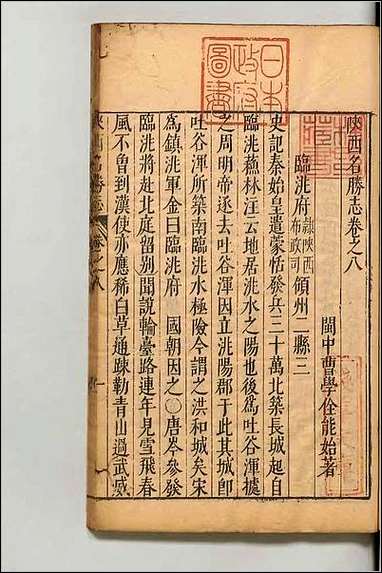 日本
政府
圖書
陝西名勝志卷之八
閩中曹學佺能始著
臨洮府隸陝西布政司領州二縣三
史記秦始皇遣蒙恬發兵三十萬北築長城起自
臨洮蘓林注云地居洮水之陽也後爲吐谷渾據
之周明帝逐去吐谷渾因立洮陽郡于此其城卽
吐谷渾所築南臨洮水極險今謂之洪和城矣宋
爲鎮洮軍金曰臨洮府　國朝因之○唐岑參發
臨洮將赴北庭留別聞說輪臺路連年見雪飛春
風不曾到漢使亦應稀白草通疎勒青山過武威